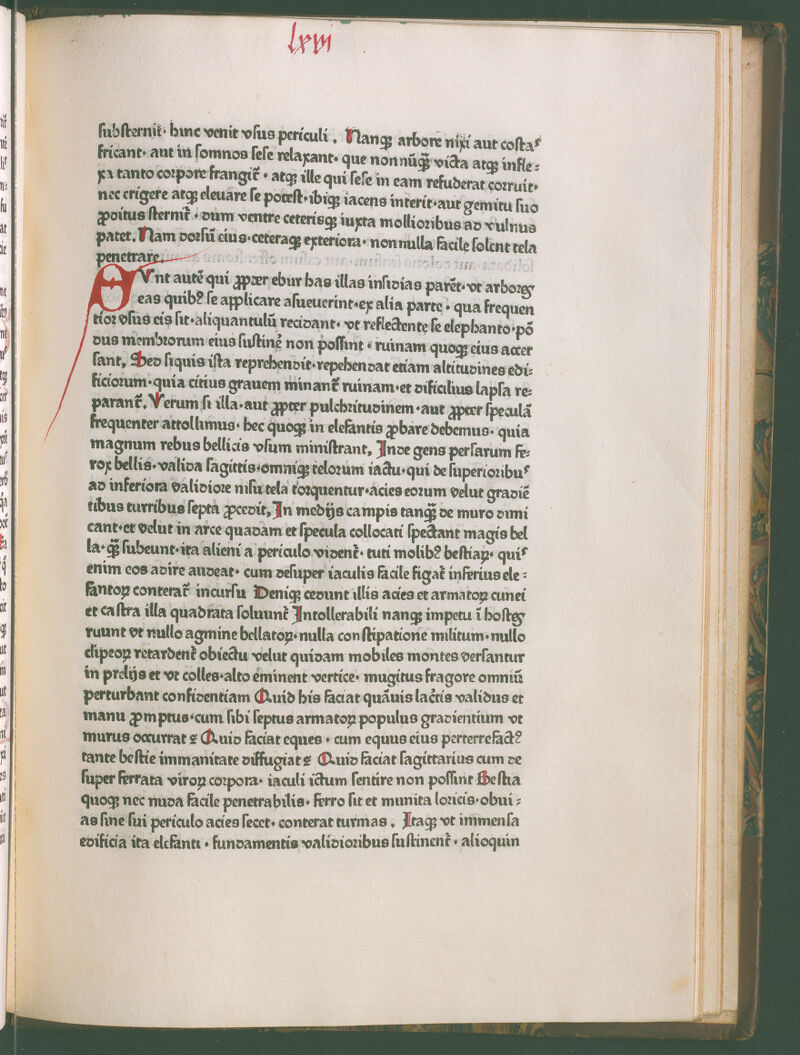 lxvi
ſubſternit· hinc venit vſus periculi. Nanqꝫ arbore nixi aut coſtaꝰ
fricant· aut in ſomnos ſeſe relaxant· que nonnūqꝫ victa atqꝫ infle⸗
xa tanto corpore frangit᷑· atqꝫ ille qui ſeſe in eam refuderat corruit·
nec erigere atqꝫ eleuare ſe poteſt·ibiqꝫ iacens interit·aut gemitu ſuo
ꝓditus ſternit᷑·dum ventre ceteriſqꝫ iuxta mollioribus ad vulnus
patet. Nam dorſū eius·ceteraqꝫ exteriora·nonnulla facile ſolent tela
penetrare.
SVnt autē qui ꝓpter ebur has illas inſidias parēt·vt arboreꝫ
eas quibꝫ ſe applicare aſueuerint·ex alia parte· qua frequen
tior vſus eis ſit·aliquantulū recidant· vt reflectente ſe elephanto·pō
dus membrorum eius ſuſtinē non poſſint· ruinam quoqꝫ eius accer
ſant. Sed ſiquis iſta reprehendit·repehendat etiam altitudines edi⸗
ficiorum·quia citius grauem minant᷑ ruinam·et dificilius lapſa re⸗
parant᷑. Verum ſi illa·aut ꝓpter pulchritudinem·aut ꝓpter ſpeculā
frequenter attollimus· hec quoqꝫ in elefantis ꝓbare debemus· quia
magnum rebus bellicis vſum miniſtrant. Inde gens perſarum fe⸗
rox bellis·valida ſagittis·omniqꝫ telorum iactu·qui de ſuperioribuꝰ
ad inferiora validiore niſu tela torquentur·acies eorum velut gradiē
tibus turribus ſepta ꝓcedit. In medijs campis tanqꝫ de muro dimi
cant·et velut in arce quadam et ſpecula collocati ſpectant magis bel
la·qꝫ ſubeunt·ita alieni a periculo vident᷑· tuti molibꝫ beſtiaꝝ· quiꝰ
enim eos adire audeat· cum deſuper iaculis facile figat᷑ inferius ele⸗
fantoꝝ conterat᷑ incurſu Deniqꝫ cedunt illis acies et armatoꝝ cunei
et caſtra illa quadrata ſoluunt᷑ Intollerabili nanqꝫ impetu ī hoſteꝫ
ruunt vt nullo agmine bellatoꝝ·nulla conſtipatione militum·nullo
clipeoꝝ retardent᷑ obiectu velut quidam mobiles montes verſantur
in prelijs et vt colles·alto eminent vertice· mugitus fragore omniū
perturbant confidentiam Quid his faciat quāuis lac̄tis validus et
manu ꝓmptus·cum ſibi ſeptus armatoꝝ populus gradientium vt
murus occurrat ? Quid faciat eques· cum equus eius perterrefactꝫ
tante beſtie immanitate diffugiat ? Quid faciat ſagittarius cum de
ſuper ferrata viroꝝ corpora· iaculi ictum ſentire non poſſint Beſtia
quoqꝫ nec nuda facile penetrabilis· ferro ſit et munita loricis·obui⸗
as ſine ſui periculo acies ſecet· conterat turmas. Itaqꝫ vt immenſa
edificia ita elefanti· fundamentis validioribus ſuſtinent᷑· alioquin